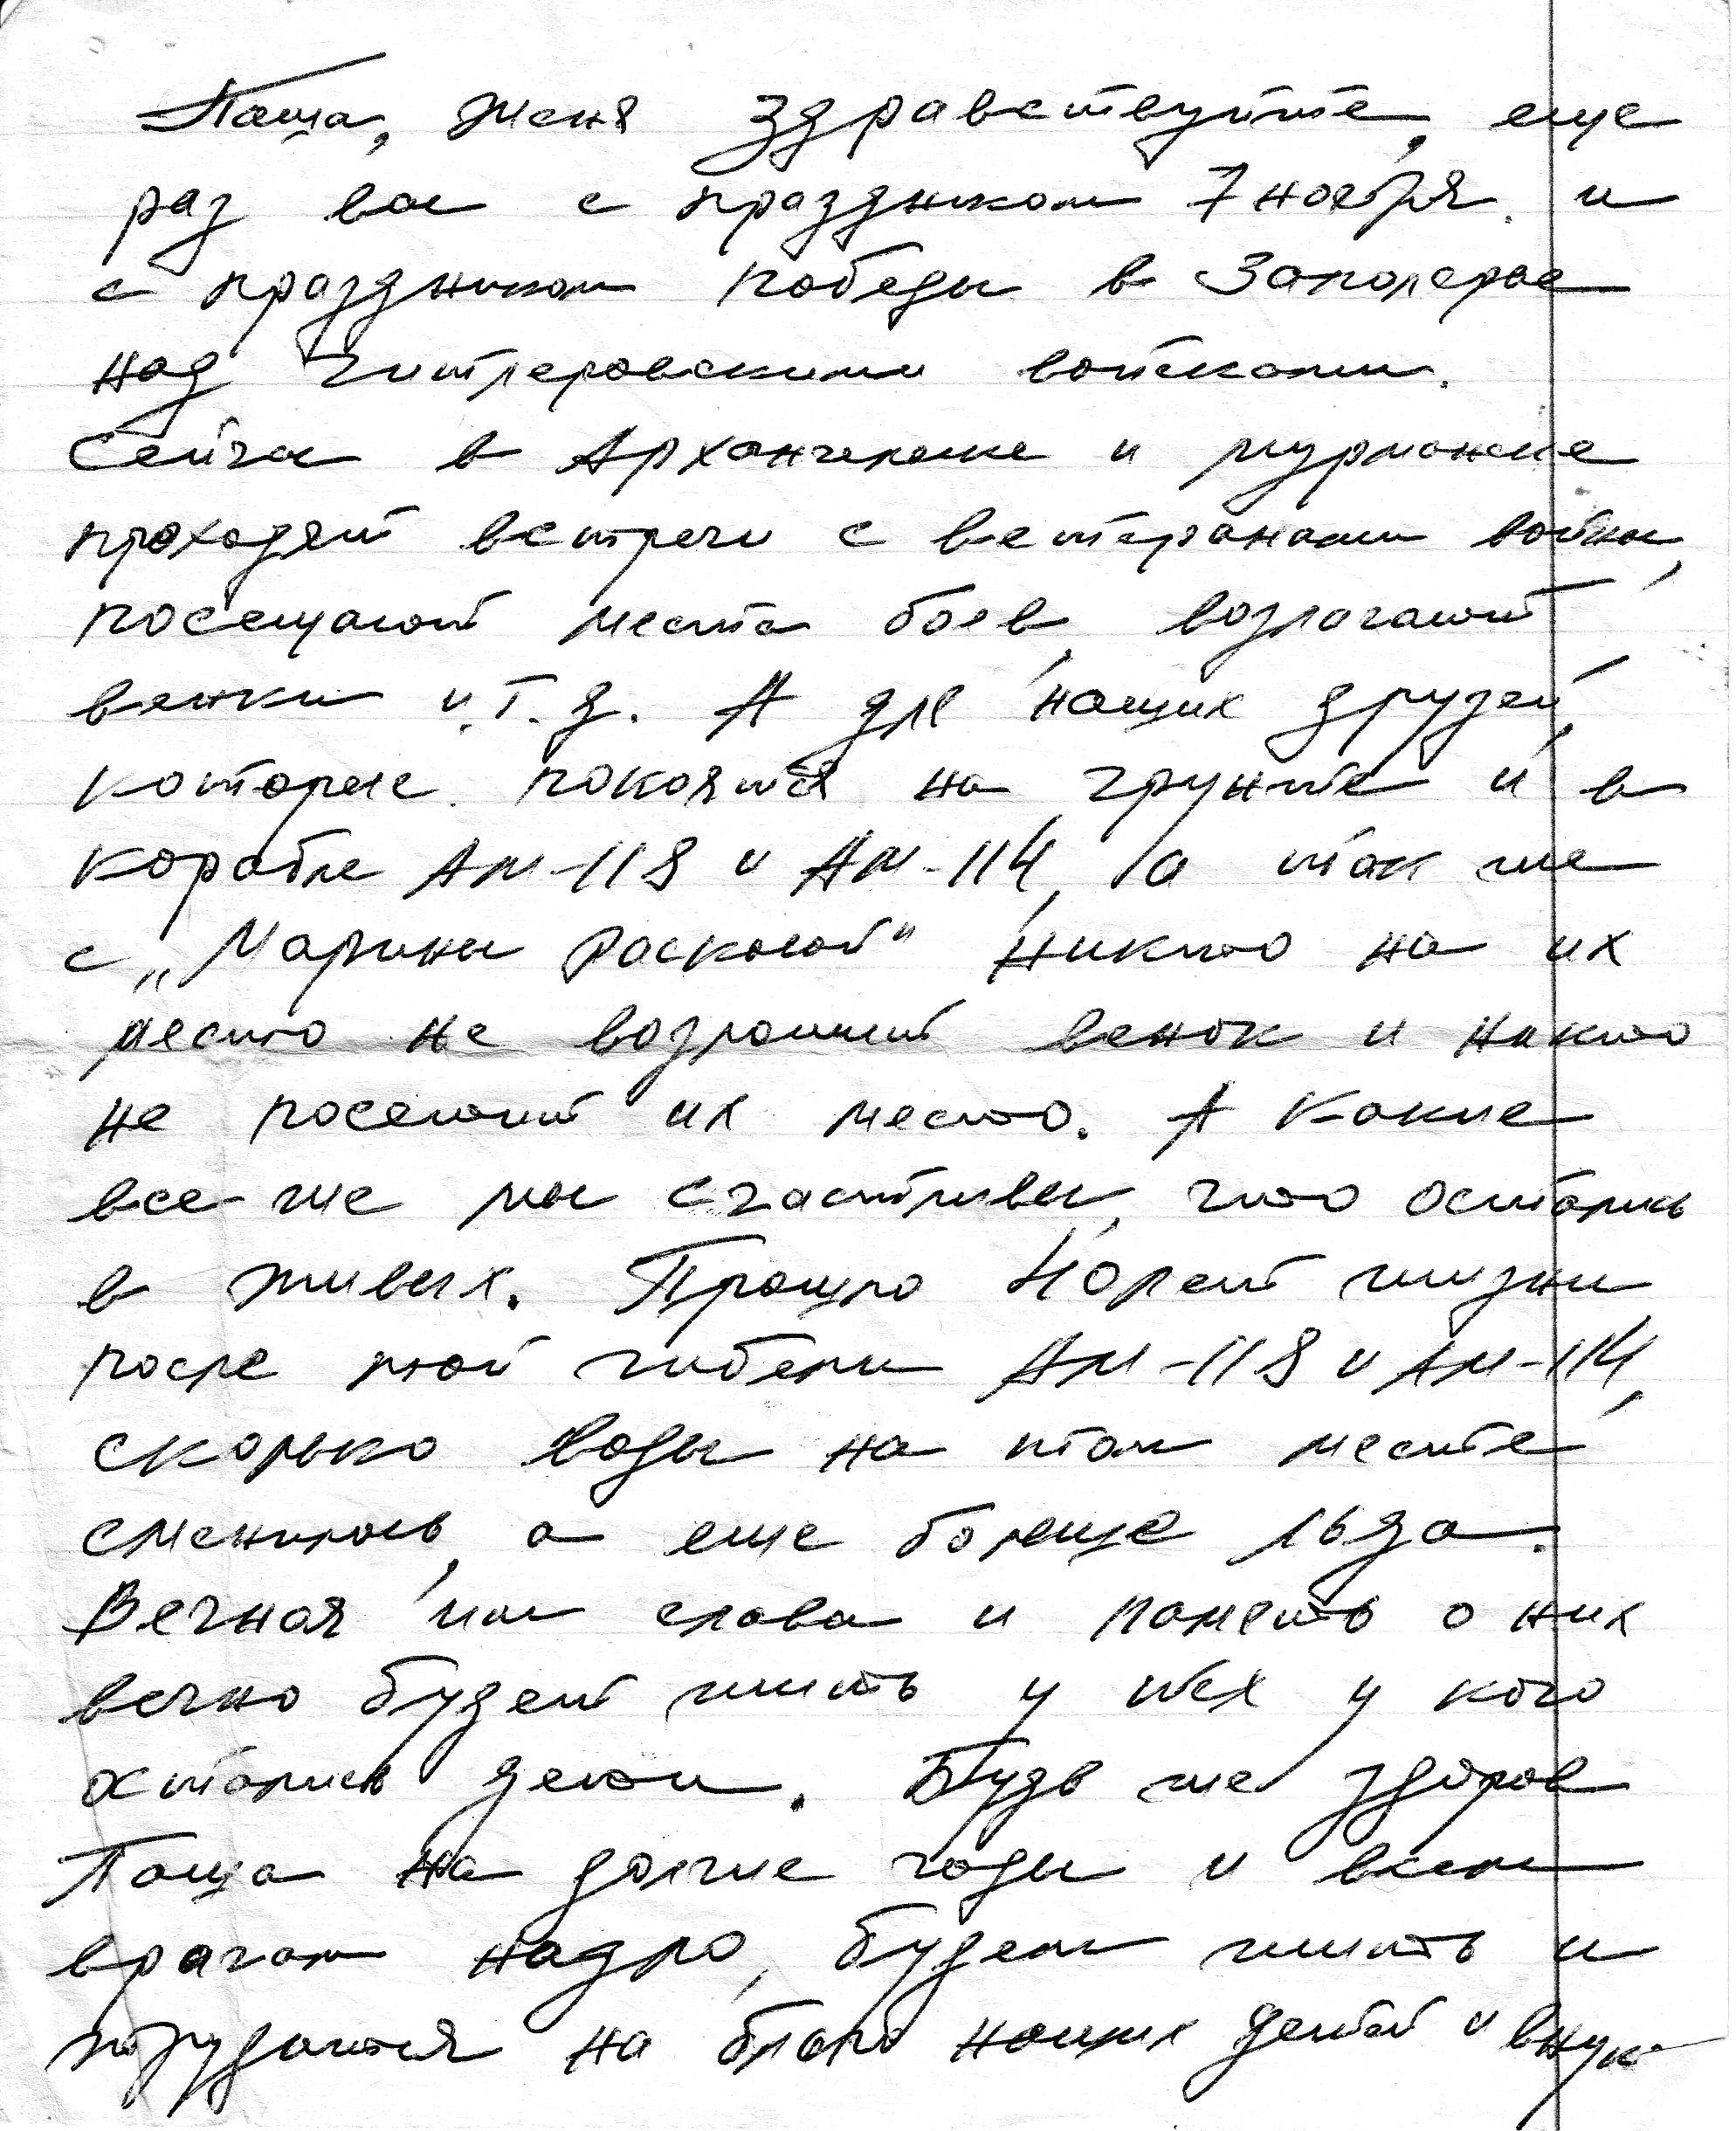 Паша, Женя здравствуйте, еще
раз вас с праздником 7 ноября. и
с праздником победы в Заполярье
над гитлеровскими войсками.
Сейчас в Архангельске и мурманске
проходят встречи с ветеранами войны,
посещают места боев, возлагают
венки и.т.д. А для наших друзей,
которые покоятся на грунте и в
корабле АМ-118 и АМ-114, а так же
с „Марины Расковой" никто на их
место не возложит венок и никто
не посетит их место. А какие
все же мы счастливы, что остались
в живых. Прошло 40 лет жизни
после той гибели АМ-118 и АМ-114,
сколько воды на том месте
сменилось, а еще больше льда.
Вечная им слава и память о них
вечно будет жить у тех у кого
остались дети. Будь же здоров
Паша на долгие годы и всем
врагам назло, будем жить и
трудится на благо наших детей и внук